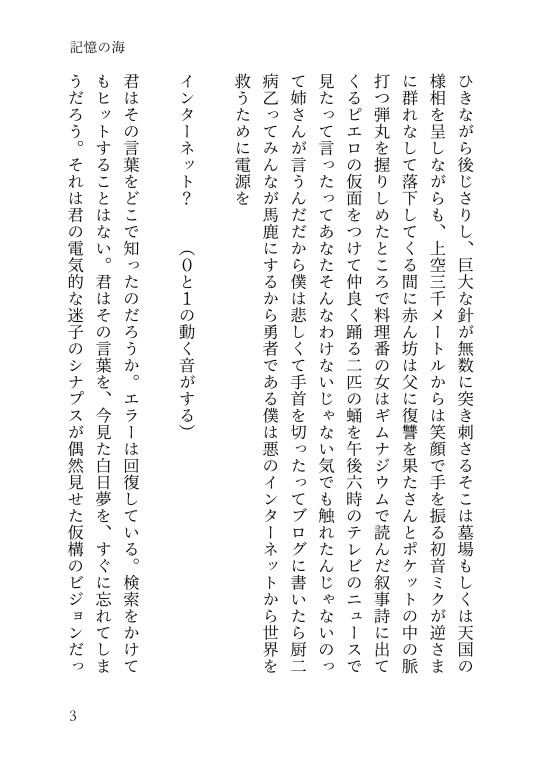 記憶の海
ひきながら後じさりし、巨大な針が無数に突き刺さるそこは墓場もしくは天国の
様相を呈しながらも、上空三千メートルからは笑顔で手を振る初音ミクが逆さま
に群れなして落下してくる間に赤ん坊は父に復讐を果たさんとポケットの中の脈
打つ弾丸を握りしめたところで料理番の女はギムナジウムで読んだ叙事詩に出て
くるピエロの仮面をつけて仲良く踊る二匹の蛹を午後六時のテレビのニュースで
見たって言ったってあなたそんなわけないじゃない気でも触れたんじゃないのっ
て姉さんが言うんだだから僕は悲しくて手首を切ったってブログに書いたら厨二
病乙ってみんなが馬鹿にするから勇者である僕は悪のインターネットから世界を
救うために電源を
インターネット？　　（０と１の動く音がする）
君はその言葉をどこで知ったのだろうか。エラーは回復している。検索をかけて
もヒットすることはない。君はその言葉を、今見た白日夢を、すぐに忘れてしま
うだろう。それは君の電気的な迷子のシナプスが偶然見せた仮構のビジョンだっ
3